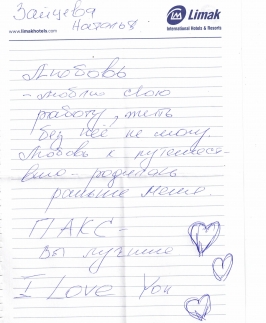 Зайцева
Наталья
Limak
International Hotels & Resorts
www.limakhotels.com
Любовь
- люблю свою
работу, жить
без неё не могу.
Любовь к путешес-
вию - родилась
раньше меня.
ПАКС -
вы лучшие
I Love You